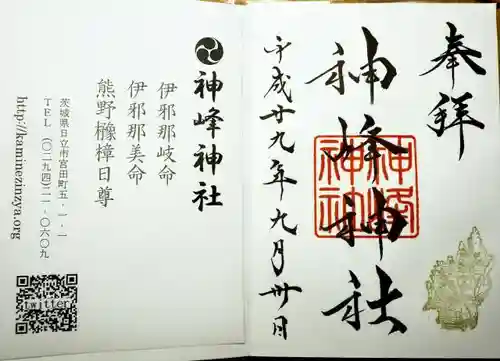 奉拝
神峰神社
神峰神社
平成廿九年九月廿日
神峰神社
伊邪那岐命
伊邪那美命
熊野櫲樟日尊
茨城県日立市宮田町五‐一‐一
TEL（〇二九四）二一‐〇六〇九
http://kaminezinzya.org
twitter